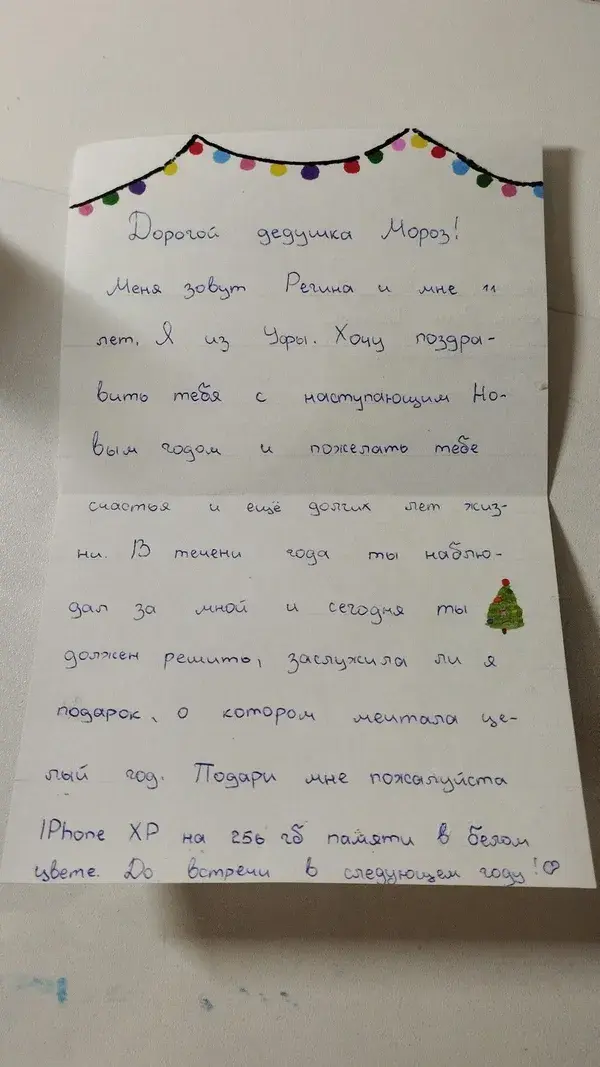 Дорогой дедушка Мороз!
Меня зовут Регина и мне 11
лет. Я из Уфы. Хочу поздра-
вить тебя с наступающим Но-
вым годом и пожелать тебе
счастья и ещё долгих лет жиз-
ни. В течени года ты наблю-
дал за мной и сегодня ты
должен решить, заслужила ли я
подарок, о котором мечтала це-
лый год. Подари мне пожалуйста
IPhone XР на 256 гб памяти в белом
цвете. До встречи в следующем году!